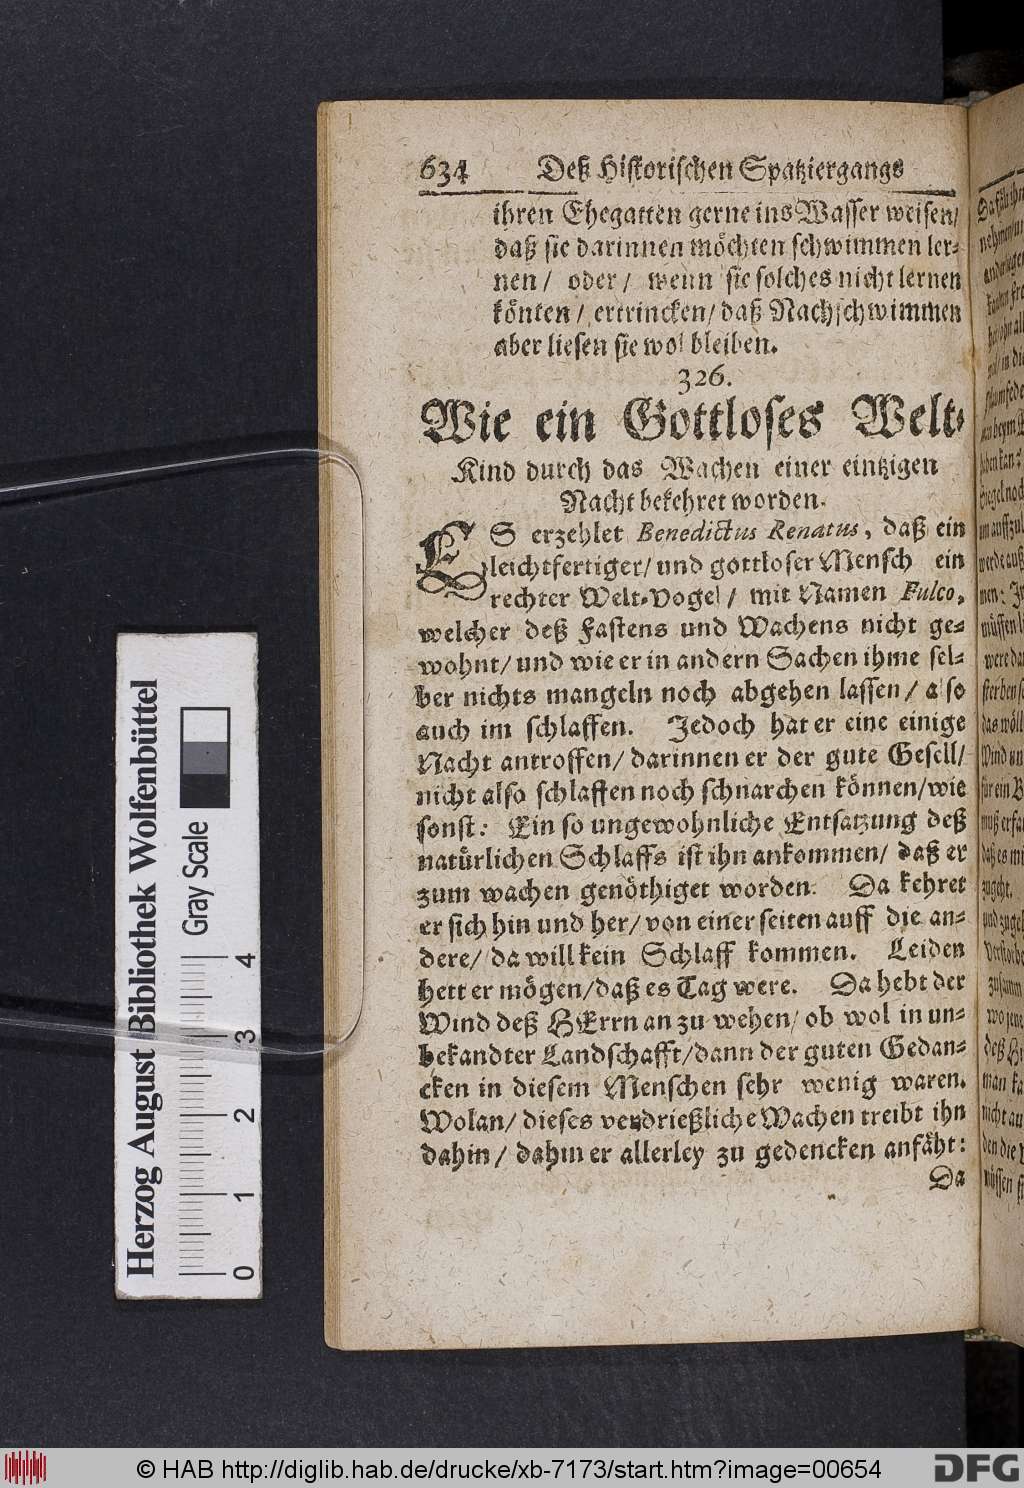 634 Deß Historischen Spatziergangs
ihren Ehegatten gerne ins Wasser weisen/
daß sie darinnen möchten schwimmen ler-
nen/ oder/ wenn sie solches nicht lernen
könten/ ertrincken/ daß Nachschwimmen
aber liesen sie wol bleiben.
326.
Wie ein Gottloses Welt-
Kind durch das Wachen einer eintzigen
Nacht bekehret worden.
ES erzehlet Benedictus Renatus, daß ein
leichtfertiger/ und gottloser Mensch ein
rechter Welt-Vogel/ mit Namen Fulco,
welcher deß Fastens und Wachens nicht ge-
wohnt/ und wie er in andern Sachen ihme sel-
ber nichts mangeln noch abgehen lassen/ also
auch im schlaffen. Jedoch hat er eine einige
Nacht antroffen/ darinnen er der gute Gesell/
nicht also schlaffen noch schnarchen können/ wie
sonst: Ein so ungewohnliche Entsatzung deß
natürlichen Schlaffs ist ihn ankommen/ daß er
zum wachen genöthiget worden. Da kehret
er sich hin und her/ von einer seiten auff die an-
dere/ da will kein Schlaff kommen. Leiden
hett er mögen/ daß es Tag were. Da hebt der
Wind deß HErrn an zu wehen/ ob wol in un-
bekandter Landschafft/ dann der guten Gedan-
cken in diesem Menschen sehr wenig waren.
Wolan/ dieses verdrießliche Wachen treibt ihn
dahin/ dahin er allerley zu gedencken anfäht:
Da
Herzog August Bibliothek Wolfenbüttel
Gray Scale
0 1 2 3 4
© HAB http://diglib.hab.de/drucke/xb-7173/start.htm?image=00654
DFG